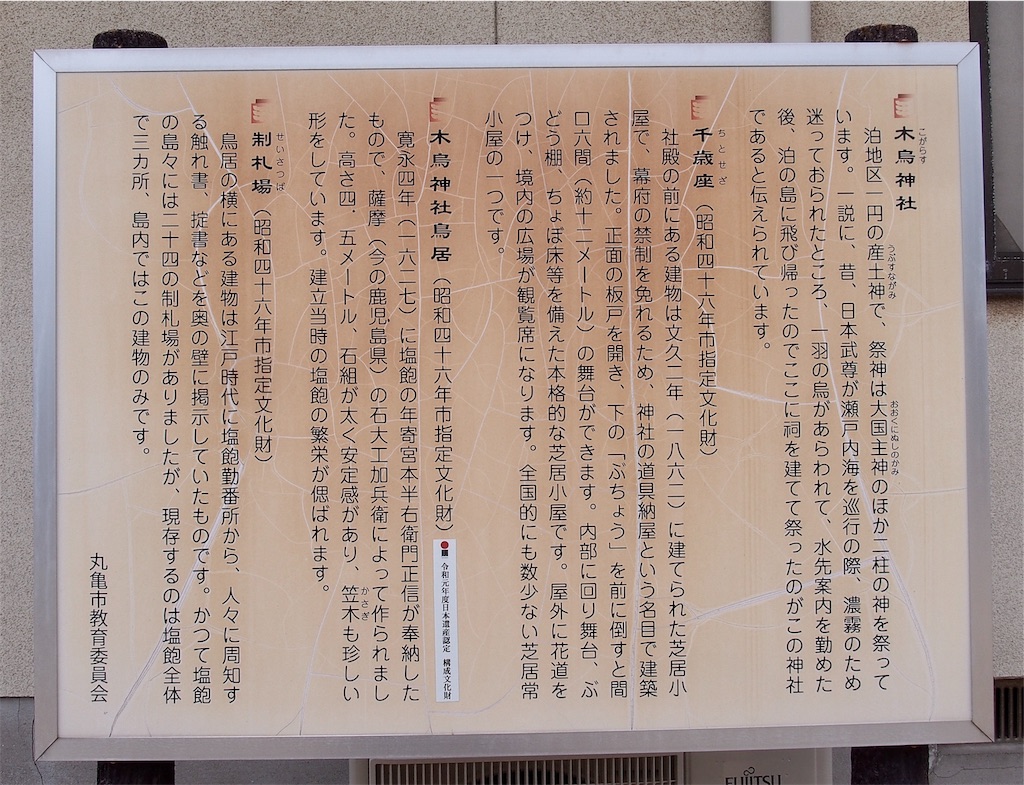 木烏神社
こがらす
泊地区一円の産土神で、祭神は大国主神のほか二柱の神を祭って
うぶすながみ
おおくにぬしのかみ
います。一説に、昔、日本武尊が瀬戸内海を巡行の際、濃霧のため
迷っておられたところ、一羽の烏があらわれて、水先案内を勤めた
後、泊の島に飛び帰ったのでここに祠を建てて祭ったのがこの神社
であると伝えられています。
千歳座（昭和四十六年市指定文化財）
ちとせざ
社殿の前にある建物は文久二年（一八六二）に建てられた芝居小
屋で、幕府の禁制を免れるため、神社の道具納屋という名目で建築
されました。正面の板戸を開き、下の「ぶちょう」を前に倒すと間
口六間（約十二メートル）の舞台ができます。内部に回り舞台、ぶ
どう棚、ちょぼ床等を備えた本格的な芝居小屋です。屋外に花道を
つけ、境内の広場が観覧席になります。全国的にも数少ない芝居常
小屋の一つです。
木烏神社鳥居（昭和四十六年市指定文化財）
令和元年度日本遺産認定 構成文化財
寛永四年（一六二七）に塩飽の年寄宮本半右衛門正信が奉納した
もので、薩摩（今の鹿児島県）の石大工加兵衛によって作られまし
た。高さ四．五メートル、石組が太く安定感があり、笠木も珍しい
かさぎ
形をしています。建立当時の塩飽の繁栄が偲ばれます。
制札場（昭和四十六年市指定文化財）
せいさつば
鳥居の横にある建物は江戸時代に塩飽勤番所から、人々に周知す
る触れ書、掟書などを奥の壁に掲示していたものです。かつて塩飽
の島々には二十四の制札場がありましたが、現存するのは塩飽全体
で三カ所、島内ではこの建物のみです。
丸亀市教育委員会
FUJITSU